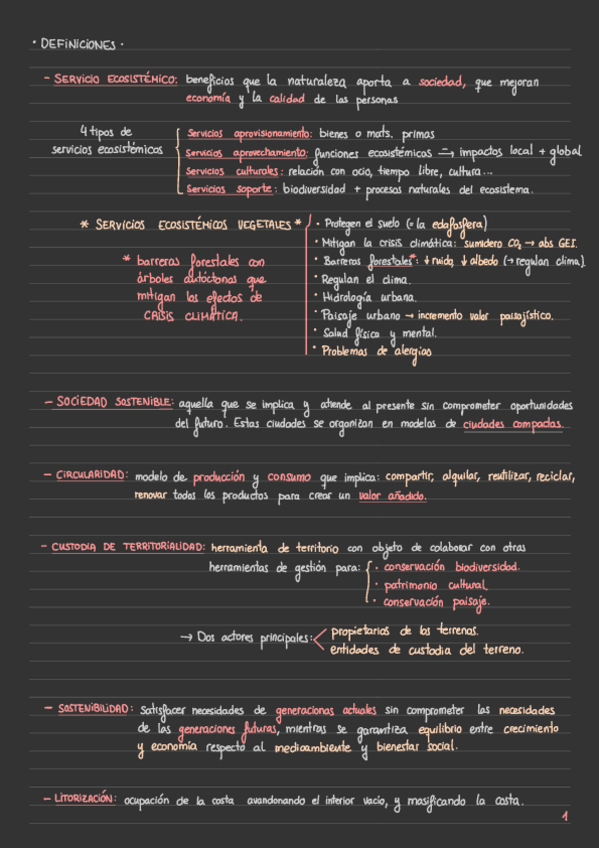 · DEFINICIONES ·
- SERVICIO ECOSISTÉMICO: beneficios que la naturaleza aporta a sociedad, que mejoran
economía y la calidad de las personas
4 tipos de
servicios ecosistémicos
Servicios aprovisionamiento: bienes o mats. primas
Servicios aprovechamiento: funciones ecosistémicas → impactos local + global
Servicios culturales: relación con ocio, tiempo libre, cultura...
Servicios soporte: biodiversidad + procesos naturales del ecosistema.
* SERVICIOS ECOSISTÉMICOS VEGETALES *
* barreras forestales con
árboles autóctonas que
mitigan los efectos de
CRISIS CLIMÁTICA.
· Protegen el suelo (= la edafosfera)
· Mitigan la crisis climática: sumidero CO₂ → abs GEI.
· Barreras forestales*: ↓ ruido, ↓ albedo (→ regulan clima).
· Regulan el clima.
· Hidrología urbana.
· Paisaje urbano → incremento valor paisajístico.
· Salud física y mental.
· Problemas de alergias
- SOCIEDAD SOSTENIBLE: aquella que se implica y atiende al presente sin comprometer oportunidades
del futuro. Estas ciudades se organizan en modelos de ciudades compactas.
- CIRCULARIDAD: modelo de producción y consumo que implica: compartir, alquilar, reutilizar, reciclar,
renovar todos los productos para crear un valor añadido.
- CUSTODIA DE TERRITORIALIDAD: herramienta de territorio con objeto de colaborar con otras
herramientas de gestión para:
· conservación biodiversidad.
· patrimonio cultural.
· conservación paisaje.
→ Dos actores principales:
propietarios de los terrenos.
entidades de custodia del terreno.
- SOSTENIBILIDAD: satisfacer necesidades de generaciones actuales sin comprometer las necesidades
de las generaciones futuras, mientras se garantiza equilibrio entre crecimiento
y economía respecto al medioambiente y bienestar social.
- LITORIZACIÓN: ocupación de la costa avandonando el interior vacío, y masificando la costa.
1